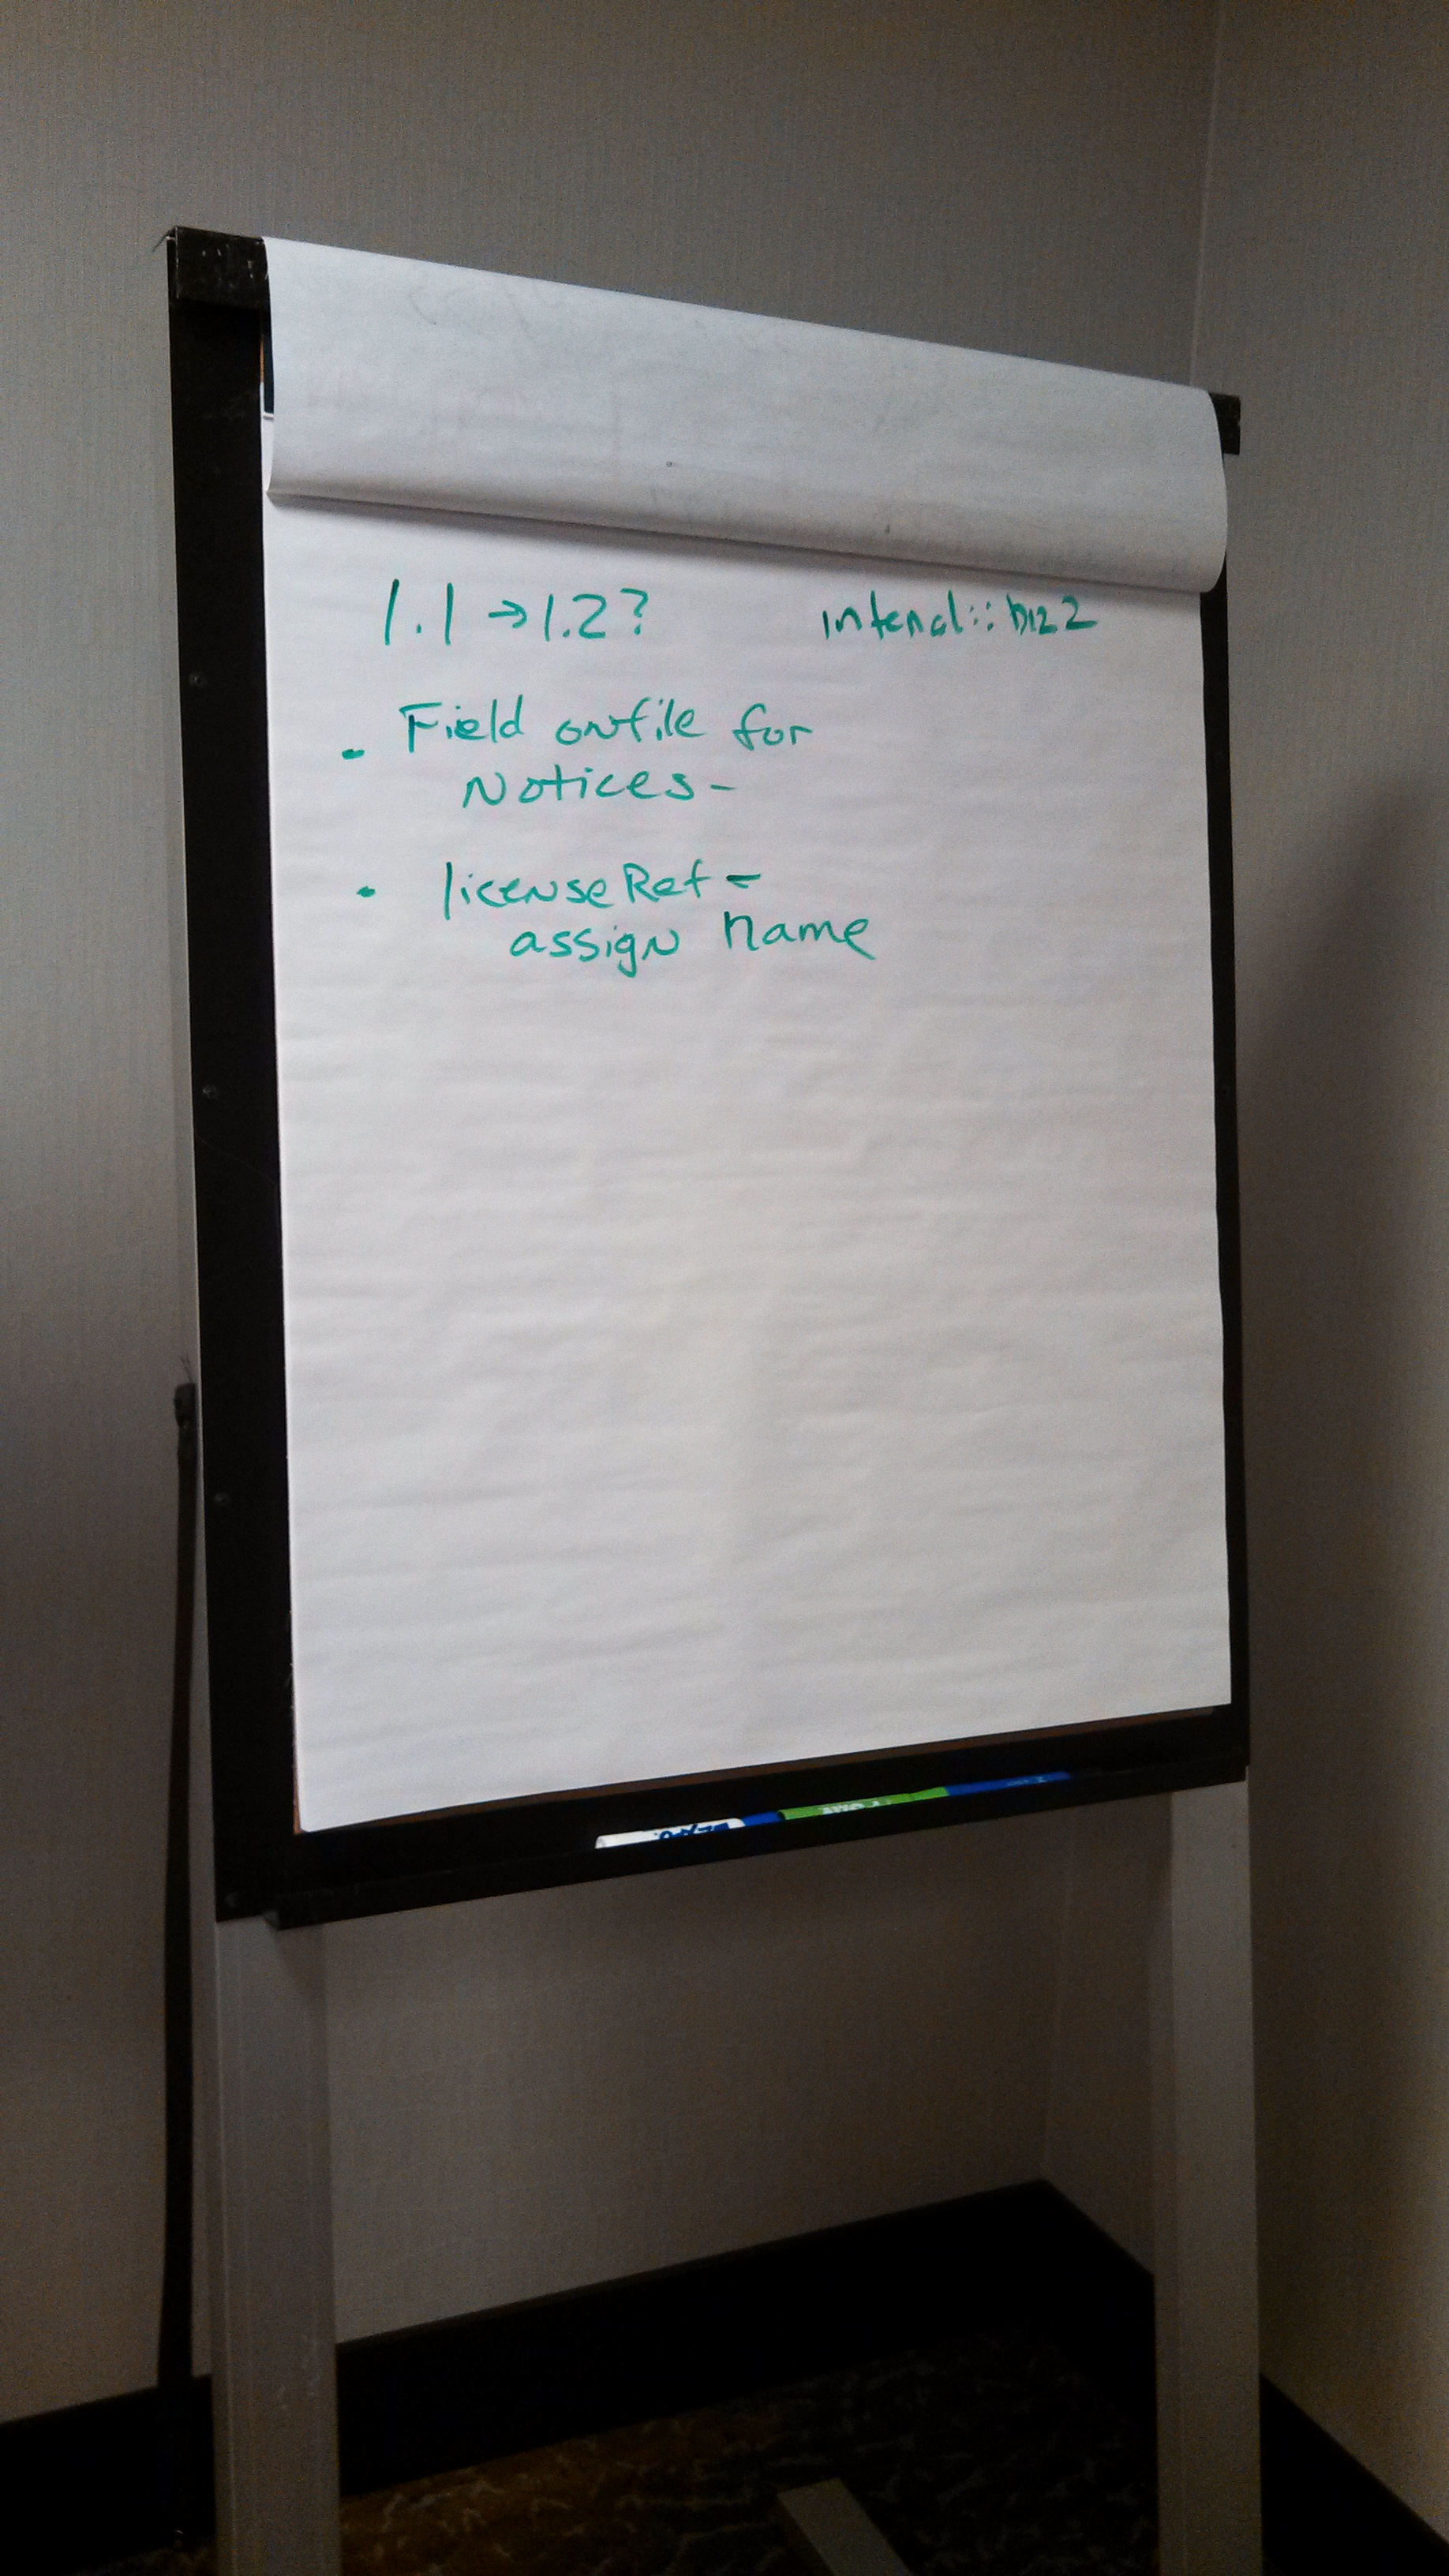 1.1 → 1.2?
intenal::
- Field onfile for
Notices -
• licenseRef -
assign Name